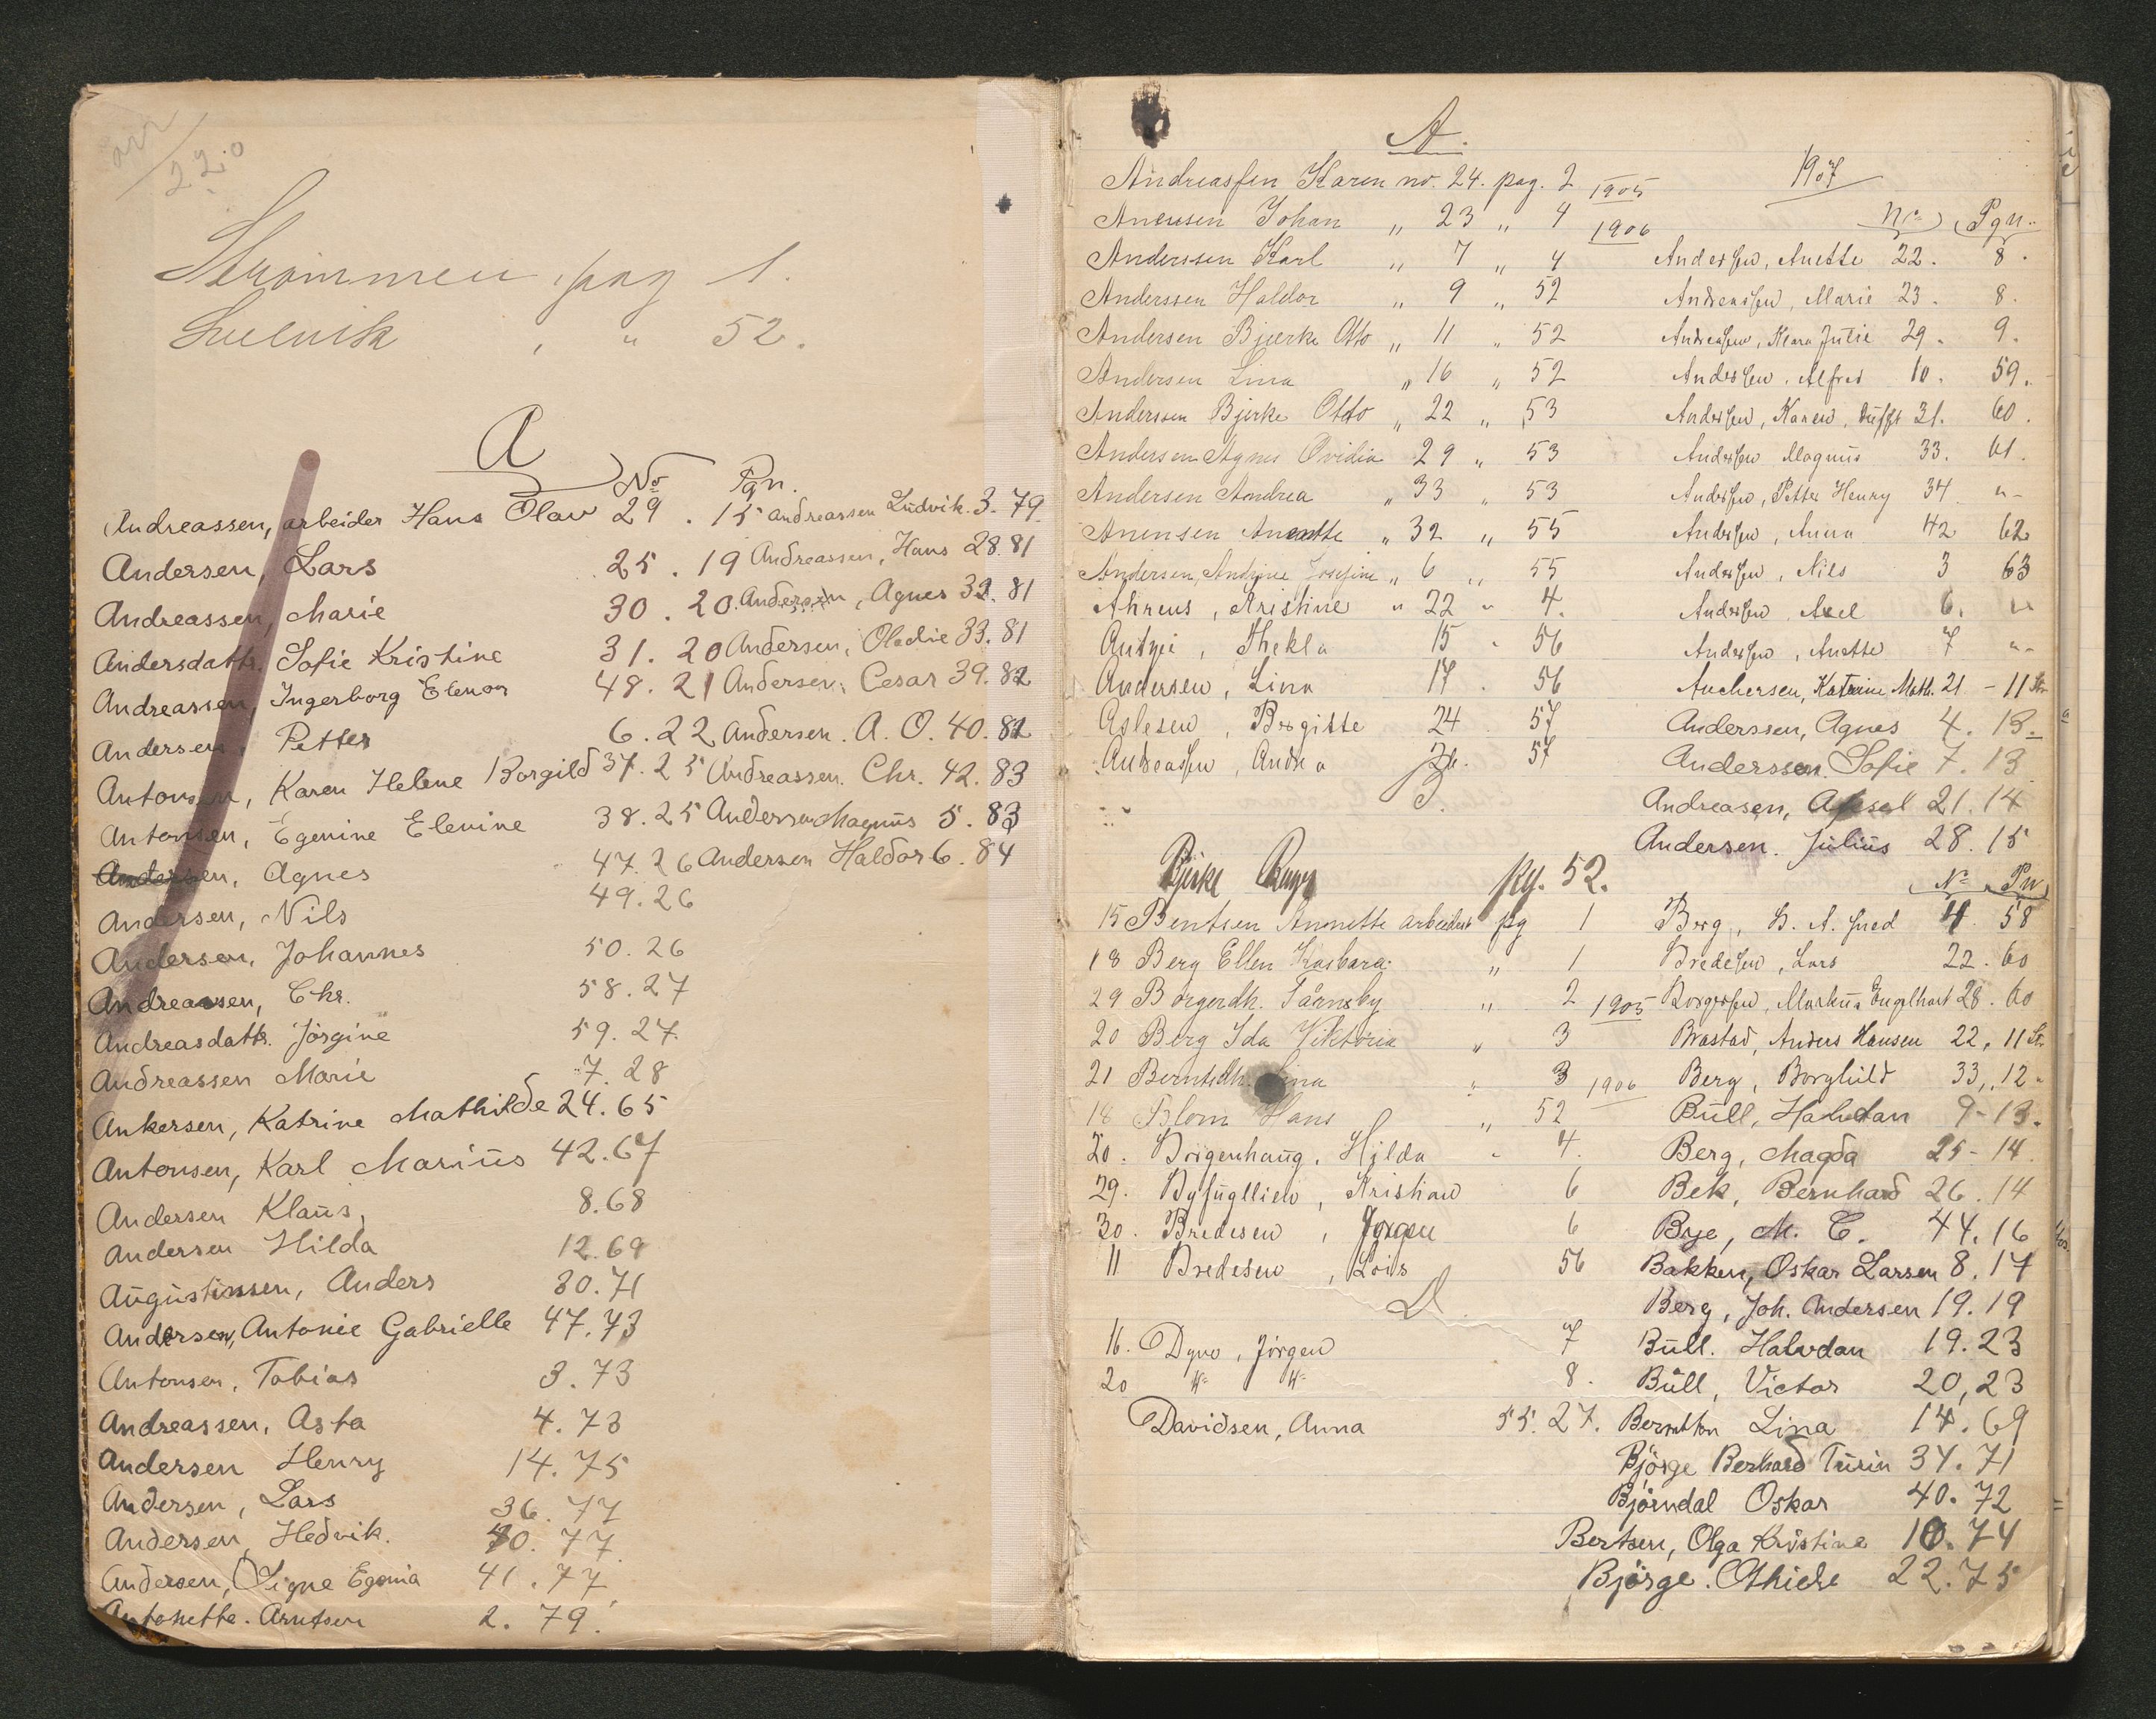 220
Strømmen pag 1.
Svelvik " 52.
A
No Pgn.
Andreassen, arbeider Hans Olav 29 . 15
Andersen, Lars 25 . 19
Andreassen, Marie 30 . 20
Andersdattr. Sofie Kristine 31. 20
Andreassen, Ingerborg Elenor 48. 21
Andersen, Petter 6. 22
Antonsen, Karen Helene Borgild 37. 25
Antonsen, Egenine Elenine 38. 25
Andersen, Agnes 47. 26
Andersen, Nils 49. 26
Andersen, Johannes 50. 26
Andreassen, Chr. 58. 27
Andreasdattr. Jörgine 59. 27.
Andreassen Marie 7. 28
Ankersen, Katrine Mathilde 24. 65
Antonsen, Karl Marius 42. 67
Andersen Klaus, 8. 68
Andersen Hilda 12. 69
Augustinssen, Anders 30. 71
Andersen, Antonie Gabrielle 47. 73
Antonsen, Tobias 3. 73
Andreassen, Asta 4. 73
Andersen Henry 14. 75
Andersen, Lars 36. 77
Andersen, Hedvik. 40. 77
Andersen, Signe Egenia 41. 77
Antonette. Arntsen 2. 79.
Andreassen Ludvik. 3. 79.
Andreassen, Hans 28. 81
Andersen, Agnes 32. 81
Andersen, Oledie 33. 81
Andersen, Cesar 39. 82
Andersen. A. O. 40. 82
Andreassen. Chr. 42. 83
Andersen Magnus 5. 83
Andersen Haldor 6. 84
A.
Andreassen Karen no. 24. pag. 2 1905
Anensen Johan " 23 " 4 1906
Anderssen Karl " 7 " 4
Anderssen Haldor " 9 " 52
Andersen Bjerke Otto " 11 " 52
Andersen Lina " 16 " 52
Anderssen Bjerke Otto " 22 " 53
Andersen Agnes Ovidia 29 " 53
Andersen Andrea " 33 " 53
Anensen Anette " 32 " 55
Andersen, Andrine Josefine " 6 " 55
Ahrens, Kristine " 22 " 4.
Thekla 15 " 56
Andersen, Lina 17 . 56
Aslesen, Birgitte 24 57
Andreassen, Andrea 57
1907
No Pgn.
Anderssen, Anette 22. 8.
Andreassen, Marie 23. 8.
Andreassen, Klara Julie 29. 9.
Anderssen, Alfred 10. 59.
Anderssen, Karen, 31. 60.
Anderssen Magnus 33. 61.
Anderssen, Petter Henry 34 "-
Anderssen, Anna 42 62
Anderssen, Nils 3 63
Anderssen Axel 6. "
Anderssen, Anette 7 "-
Anchersen, Katrine Math. 21 - 11 Str
Anderssen, Agnes 4. 13.
Anderssen. Sofie 7. 13
Andreasen, Aksel 21. 14
Andersen. Julius 28. 15
B.
Bjerke pg. 52.
15 Bentsen Annette arbeiderske pg 1
18 Berg Ellen Kasbara " 1
29 Borgerdh. Taansby " 2 1905
20 Berg Ida Viktoria " 3
21 Berntsdh. Lina " 3 1906
18 Blom Hans " 52
20. Borgenhaug, Hilda " 4.
29. Byfugllien, Kristian 6
30. Bredesen, Jørgen 6
11 Bredesen, Lars 56
No Pn
Borg, H. A. 4. 58
Bredesen, Lars 22. 60
Borgersen, Markus Engelhart 28. 60
Brastad, Anders Hansen 22, 11 Str
Berg, Borghild 33,. 12 "
Bull, Halvdan 9 - 13.
Berg, Magda 25 - 14.
Bek, Bernhard 26. 14
Bye, M. C. 44. 16
Bakken, Oskar Larsen 8. 17
Berg, Joh. Andersen 19. 19
Bull. Halvdan 19. 23
Bull, Victor 20, 23
Berntsen Lina 14. 69
Björge Berhard Turin 34. 71
Björndal Oskar 40. 72
Bertsen, Olga Kristine 10. 74
Björge. Othide 22. 75
D.
16. Dyno, Jörgen 7
20 " " 8.
Davidsen, Anna 55. 27.